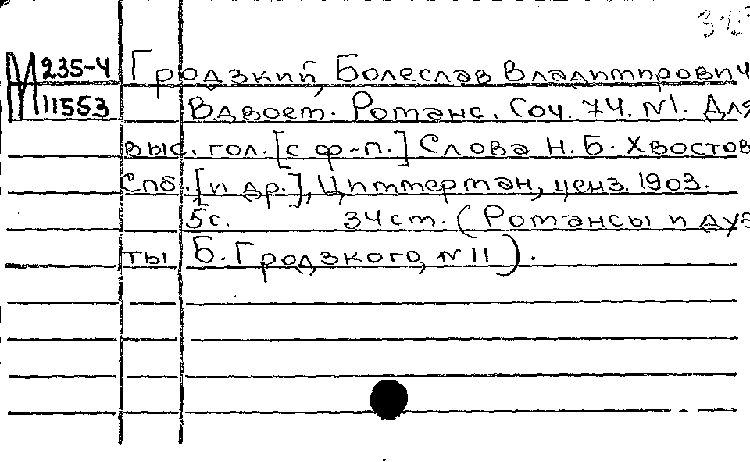 М 235-4
11553
Гродзкий, Болеслав Владимирович
Вдвоем. Романс. Соч. 74. №1. Для
выс. гол. [с ф-п.] Слова Н. Б. Хвостов
Спб. [и др.], Циммерман, ценз. 1903.
5с. 34см. (Романсы и дуэ
ты Б. Гродзкого, №11).